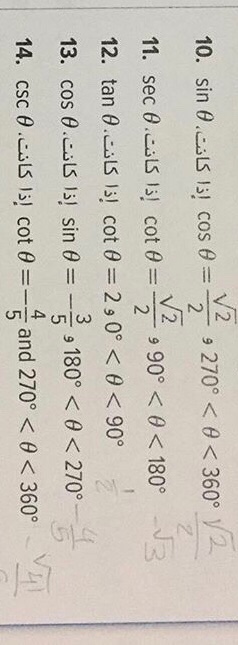 10. sin θ، إذا كانت cos θ = √2/2 و 270° < θ < 360° √2/2
11. sec θ، إذا كانت cot θ = √2/2 و 90° < θ < 180° -√3
12. tan θ، إذا كانت cot θ = 2 و 0° < θ < 90° 1/2
13. cos θ، إذا كانت sin θ = -3/5 و 180° < θ < 270° -4/5
14. csc θ، إذا كانت cot θ = -4/5 and 270° < θ < 360° -√41